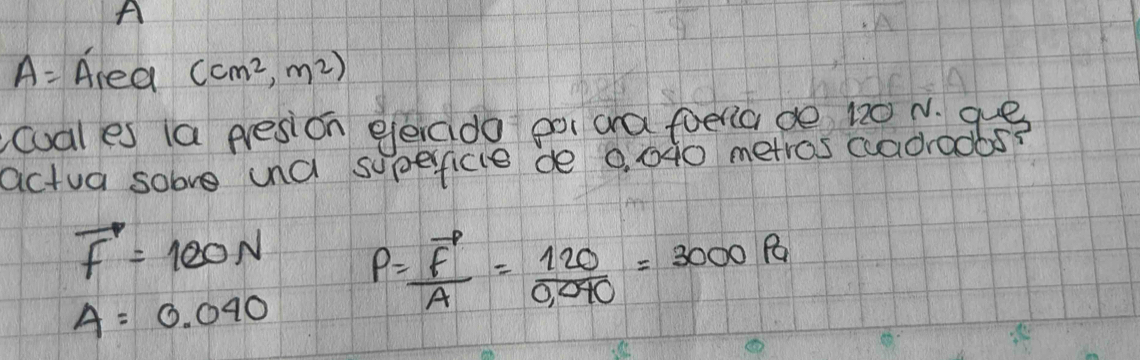 A
A = Área (cm², m²)
Cual es la presion ejercida por una fuerza de 120 N. que
actua sobre una superficie de 0.040 metros cuadrados?
F⃗ = 120 N P = F⃗ / A = 120 / 0,040 = 3000 Pa
A = 0.040